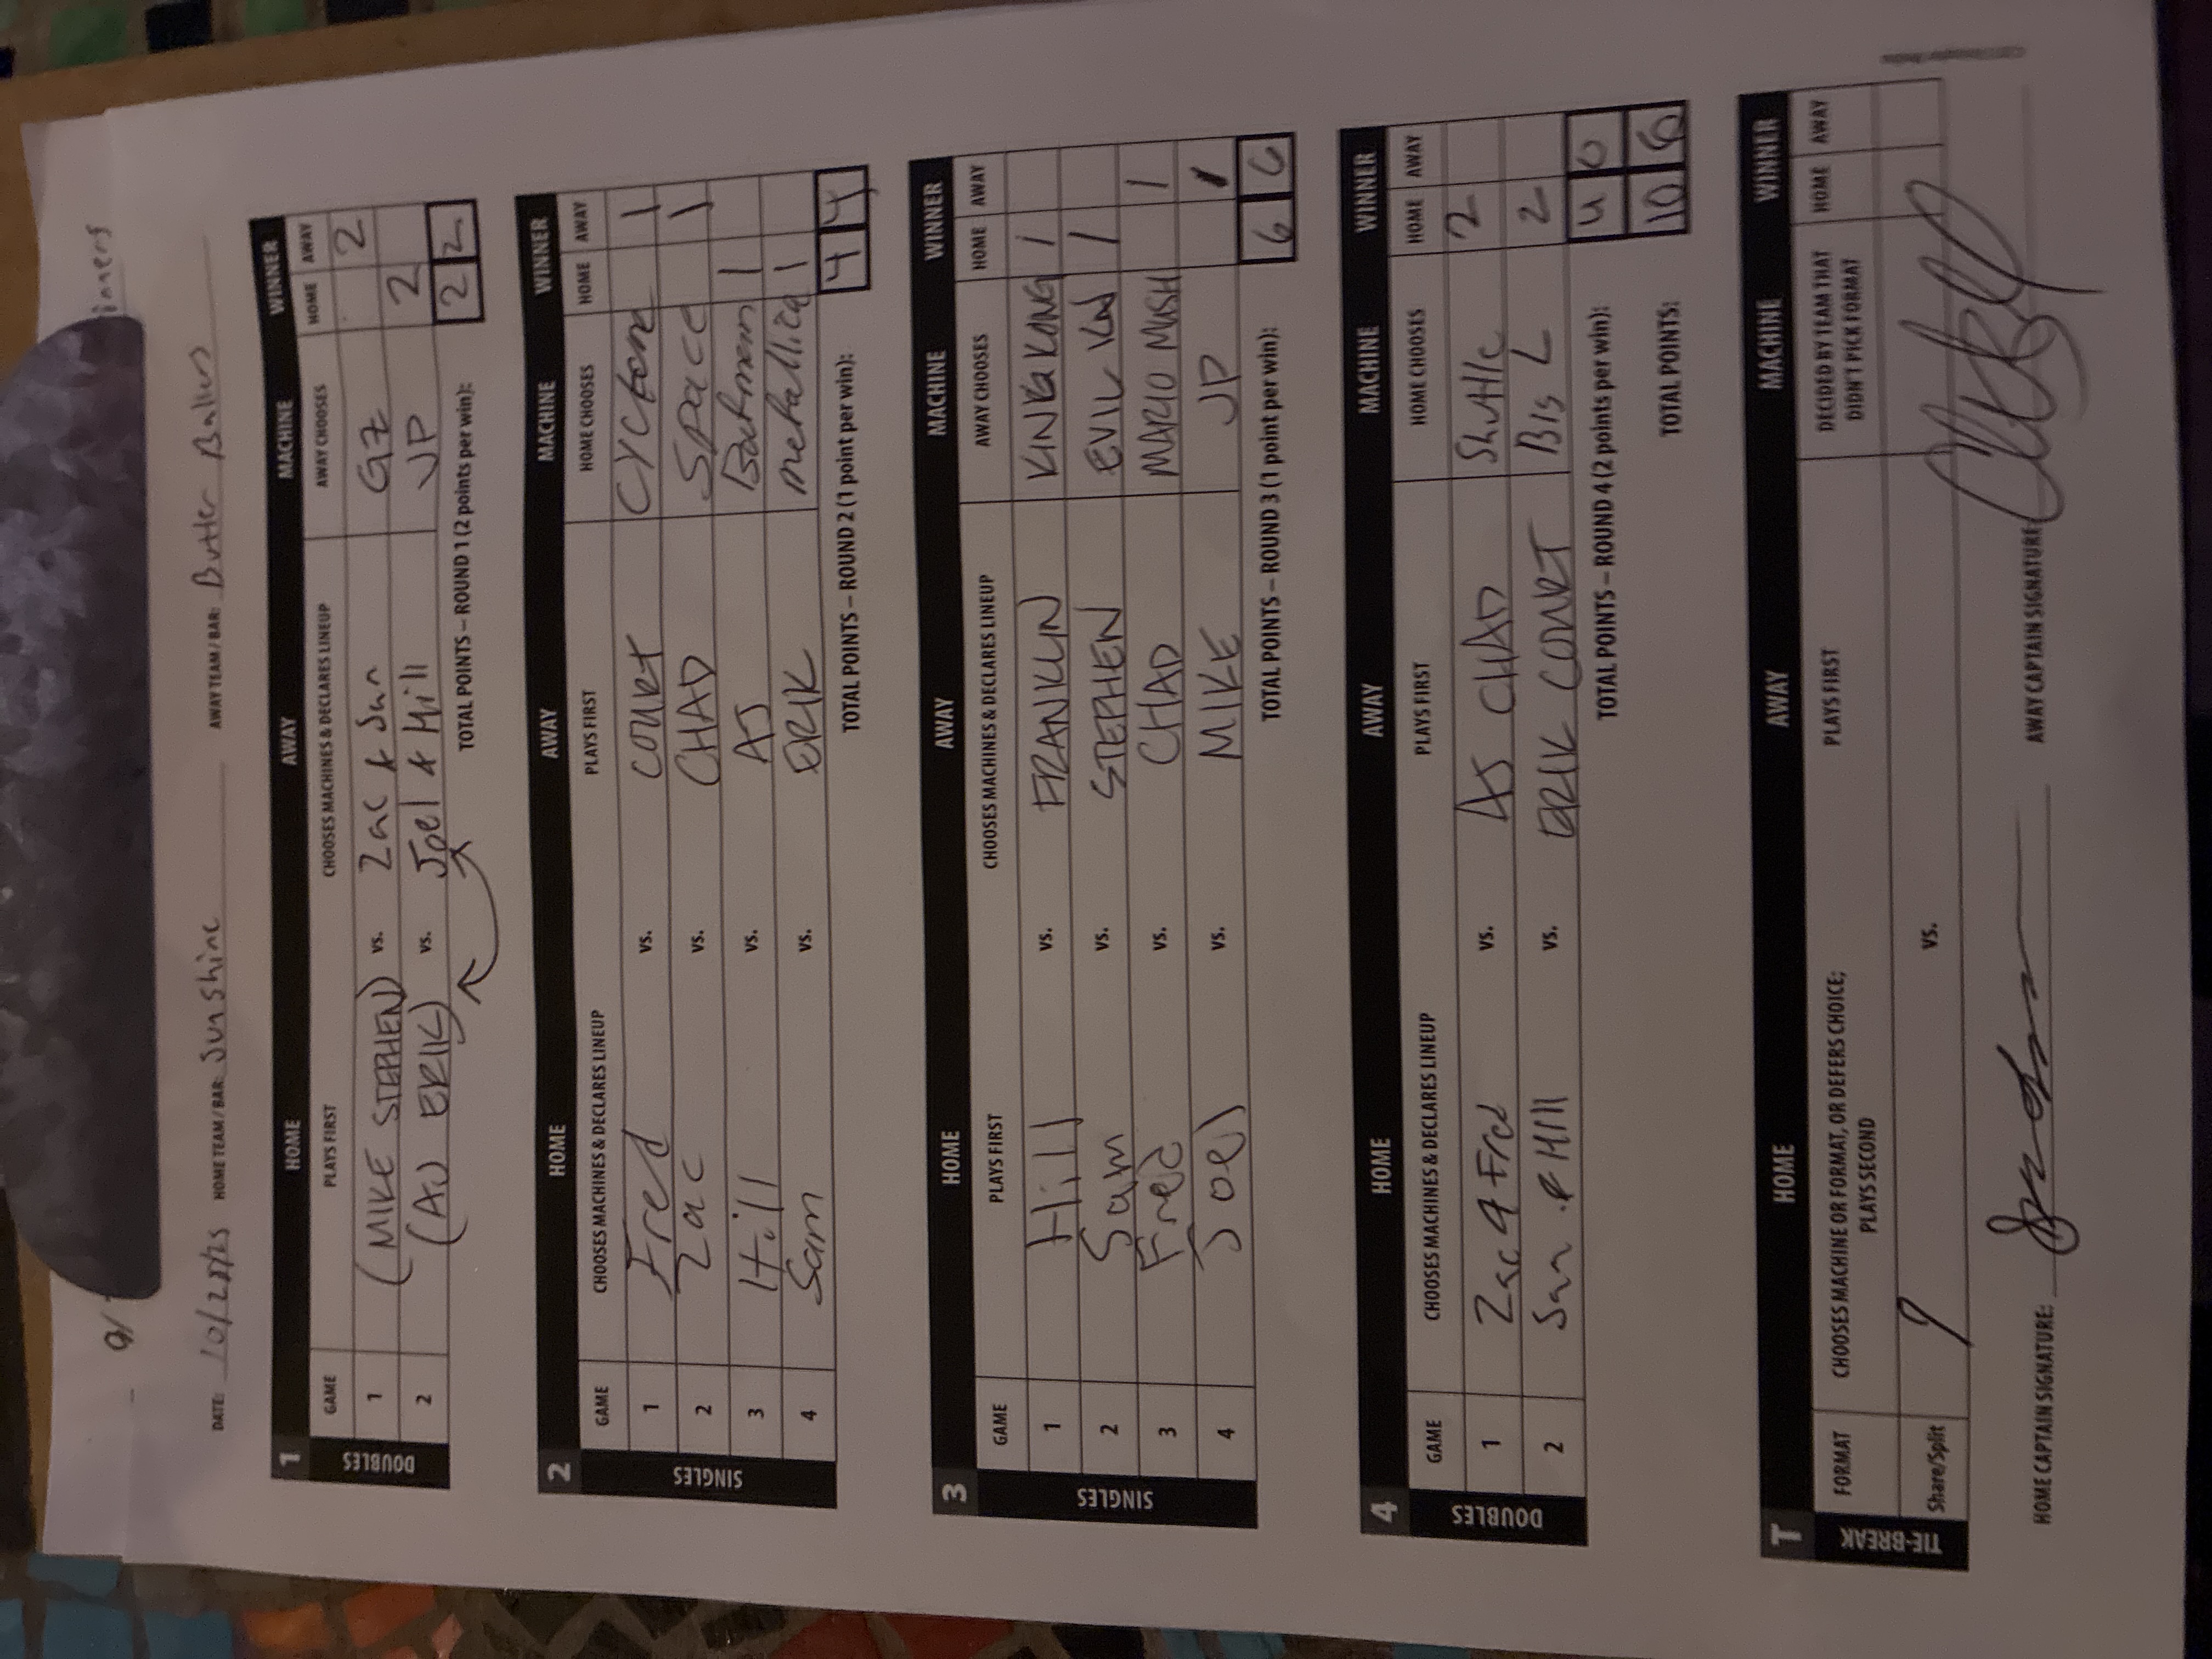 DATE: 10/28/25 HOME TEAM / BAR: Sunshine AWAY TEAM / BAR: Butter Ballers
1 HOME AWAY MACHINE WINNER
GAME PLAYS FIRST CHOOSES MACHINES & DECLARES LINEUP AWAY CHOOSES HOME AWAY
DOUBLES
1 (MIKE STEPHEN) vs. Zac & Sam GZ 2
2 (AJ ERIK) vs. Joel & Hill JP 2
TOTAL POINTS – ROUND 1 (2 points per win): 2 2
2 HOME AWAY MACHINE WINNER
GAME CHOOSES MACHINES & DECLARES LINEUP PLAYS FIRST HOME CHOOSES HOME AWAY
SINGLES
1 Fred vs. COURT Cyclone 1
2 Zac vs. CHAD Space 1
3 Hill vs. AJ Batman 1
4 Sam vs. ERIK metallica 1
TOTAL POINTS – ROUND 2 (1 point per win): 4 4
3 HOME AWAY MACHINE WINNER
GAME PLAYS FIRST CHOOSES MACHINES & DECLARES LINEUP AWAY CHOOSES HOME AWAY
SINGLES
1 Hill vs. FRANKLIN KING KONG 1
2 Sam vs. STEPHEN EVIL KN 1
3 Fred vs. CHAD MARIO MUSH 1
4 Joel vs. MIKE JP 1
TOTAL POINTS – ROUND 3 (1 point per win): 6 6
4 HOME AWAY MACHINE WINNER
GAME CHOOSES MACHINES & DECLARES LINEUP PLAYS FIRST HOME CHOOSES HOME AWAY
DOUBLES
1 Zac & Fred vs. AJ CHAD Shuttle 2
2 Sam & Hill vs. ERIK COURT Big L 2
TOTAL POINTS – ROUND 4 (2 points per win): 4 0
TOTAL POINTS: 10 6
T HOME AWAY MACHINE WINNER
FORMAT CHOOSES MACHINE OR FORMAT, OR DEFERS CHOICE; PLAYS SECOND PLAYS FIRST DECIDED BY TEAM THAT DIDN'T PICK FORMAT HOME AWAY
TIE-BREAK
Share/Split vs.
HOME CAPTAIN SIGNATURE: AWAY CAPTAIN SIGNATURE: